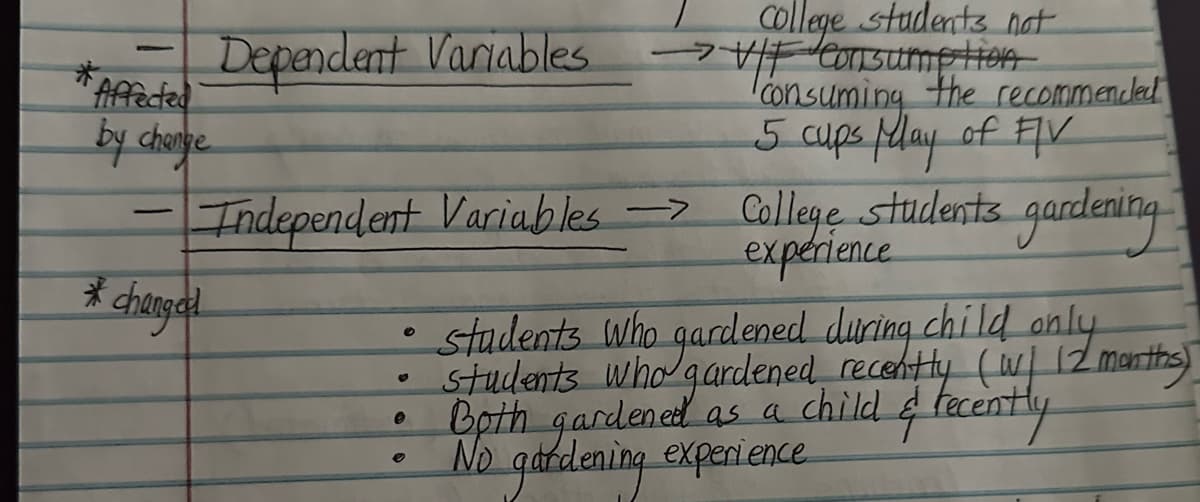 college students not
- Dependent Variables → V/F Consumption
* Affected consuming the recommended
by change 5 cups /day of F/V
- Independent Variables → College students gardening
experience
* changed
• students who gardened during child only
• students who gardened recently (w/ 12 months)
• Both gardened as a child & recently
• No gardening experience